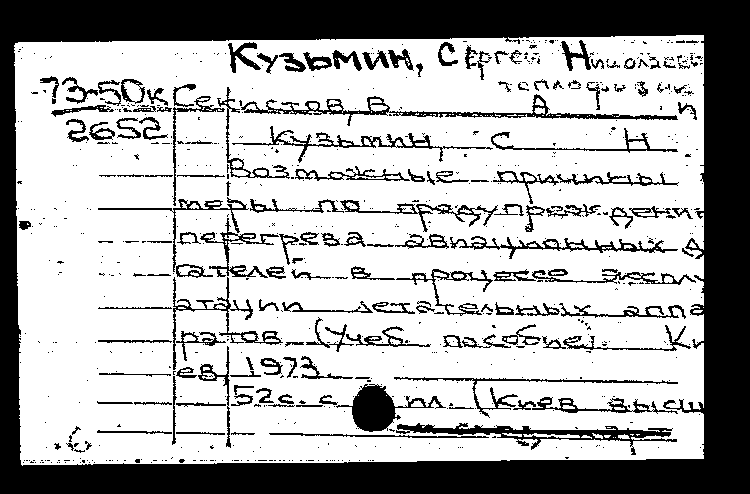 Кузьмин, Сергей Николаев
теплофизик
73-50к Секистов, В А п
2652
Кузьмин, С Н
Возможные причины
меры по предупрежденик
перегрева авиационных д
гателей в процессе экспл
атации летательных аппа
ратов. (Учеб. пособие). Ки
ев, 1973.
52с. с ил. (Киев высш